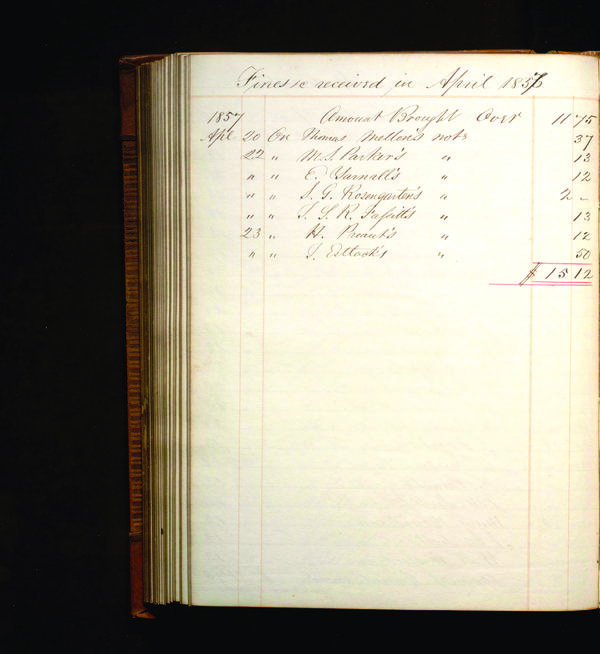 Fines &c received in April 1857
1857 Amount Brought Over 11 75
Apl 20 On Thomas Mellon's note 37
22 " M. S. Parker's " 13
" " E. Yarnall's " 12
" " S. G. Rosengarten's " 2 "
" " S. S. R. " 13
23 " H. " 12
" " J. " 50
$ 15 12